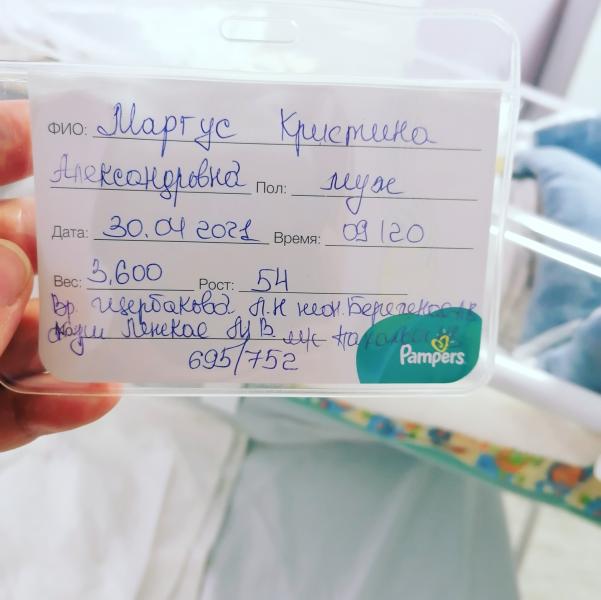 ФИО: Мартус Кристина
Александровна Пол: муж
Дата: 30.04 2021 Время: 09 | 20
Вес: 3.600 Рост: 54
Вр. Щербакова Л.Н неон.
М В.
695/752
Pampers